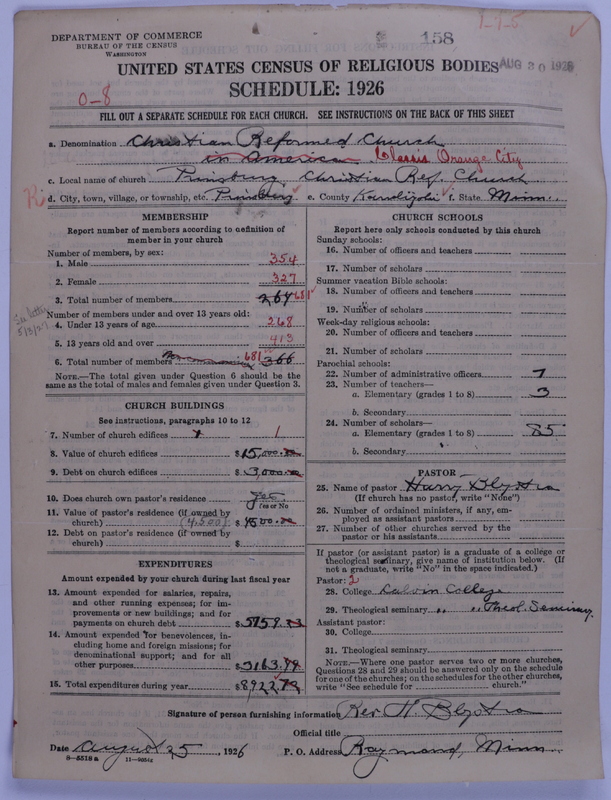 1-1-5
158
DEPARTMENT OF COMMERCE
BUREAU OF THE CENSUS
WASHINGTON
AUG 30 1926
UNITED STATES CENSUS OF RELIGIOUS BODIES
SCHEDULE: 1926
0-8
FILL OUT A SEPARATE SCHEDULE FOR EACH CHURCH. SEE INSTRUCTIONS ON THE BACK OF THIS SHEET
a. Denomination Christian Reformed Church
in America Classis Orange City
c. Local name of church Prinsburg Christian Ref. Church
d. City, town, village, or township, etc. Prinsburg e. County Kandiyohi f. State Minn.
MEMBERSHIP
Report number of members according to definition of
member in your church
Number of members, by sex:
1. Male 354
2. Female 327
3. Total number of members 264 681
Number of members under and over 13 years old:
See letter
5/3/27
4. Under 13 years of age 268
5. 13 years old and over 413
6. Total number of members 681 366
NOTE.—The total given under Question 6 should be the
same as the total of males and females given under Question 3.
CHURCH BUILDINGS
See instructions, paragraphs 10 to 12
7. Number of church edifices 1
8. Value of church edifices $15,000.00
9. Debt on church edifices $3,000.00
10. Does church own pastor's residence yes
Yes or No
11. Value of pastor's residence (if owned by
church) (4,500) $4500.00
12. Debt on pastor's residence (if owned by
church) $
EXPENDITURES
Amount expended by your church during last fiscal year
13. Amount expended for salaries, repairs,
and other running expenses; for im-
provements or new buildings; and for
payments on church debt $5759.23
14. Amount expended for benevolences, in-
cluding home and foreign missions; for
denominational support; and for all
other purposes $3163.49
15. Total expenditures during year $8922.72
CHURCH SCHOOLS
Report here only schools conducted by this church
Sunday schools:
16. Number of officers and teachers
17. Number of scholars
Summer vacation Bible schools:
18. Number of officers and teachers
19. Number of scholars
Week-day religious schools:
20. Number of officers and teachers
21. Number of scholars
Parochial schools:
22. Number of administrative officers 7
23. Number of teachers—
a. Elementary (grades 1 to 8) 3
b. Secondary
24. Number of scholars—
a. Elementary (grades 1 to 8) 85
b. Secondary
PASTOR
25. Name of pastor Harry Blystra
(If church has no pastor, write "None")
26. Number of ordained ministers, if any, em-
ployed as assistant pastors
27. Number of other churches served by the
pastor or his assistants
If pastor (or assistant pastor) is a graduate of a college or
theological seminary, give name of institution below. (If
not a graduate, write "No" in the space indicated.)
Pastor: 2
28. College Calvin College
29. Theological seminary " " Theol. Seminary
Assistant pastor:
30. College
31. Theological seminary
NOTE.—Where one pastor serves two or more churches,
Questions 28 and 29 should be answered only on the schedule
for one of the churches; on the schedules for the other churches,
write "See schedule for church."
Signature of person furnishing information Rev. H. Blystra
Official title
Date August 25, 1926 P. O. Address Raymond, Minn.
8—5518a 11—9054c